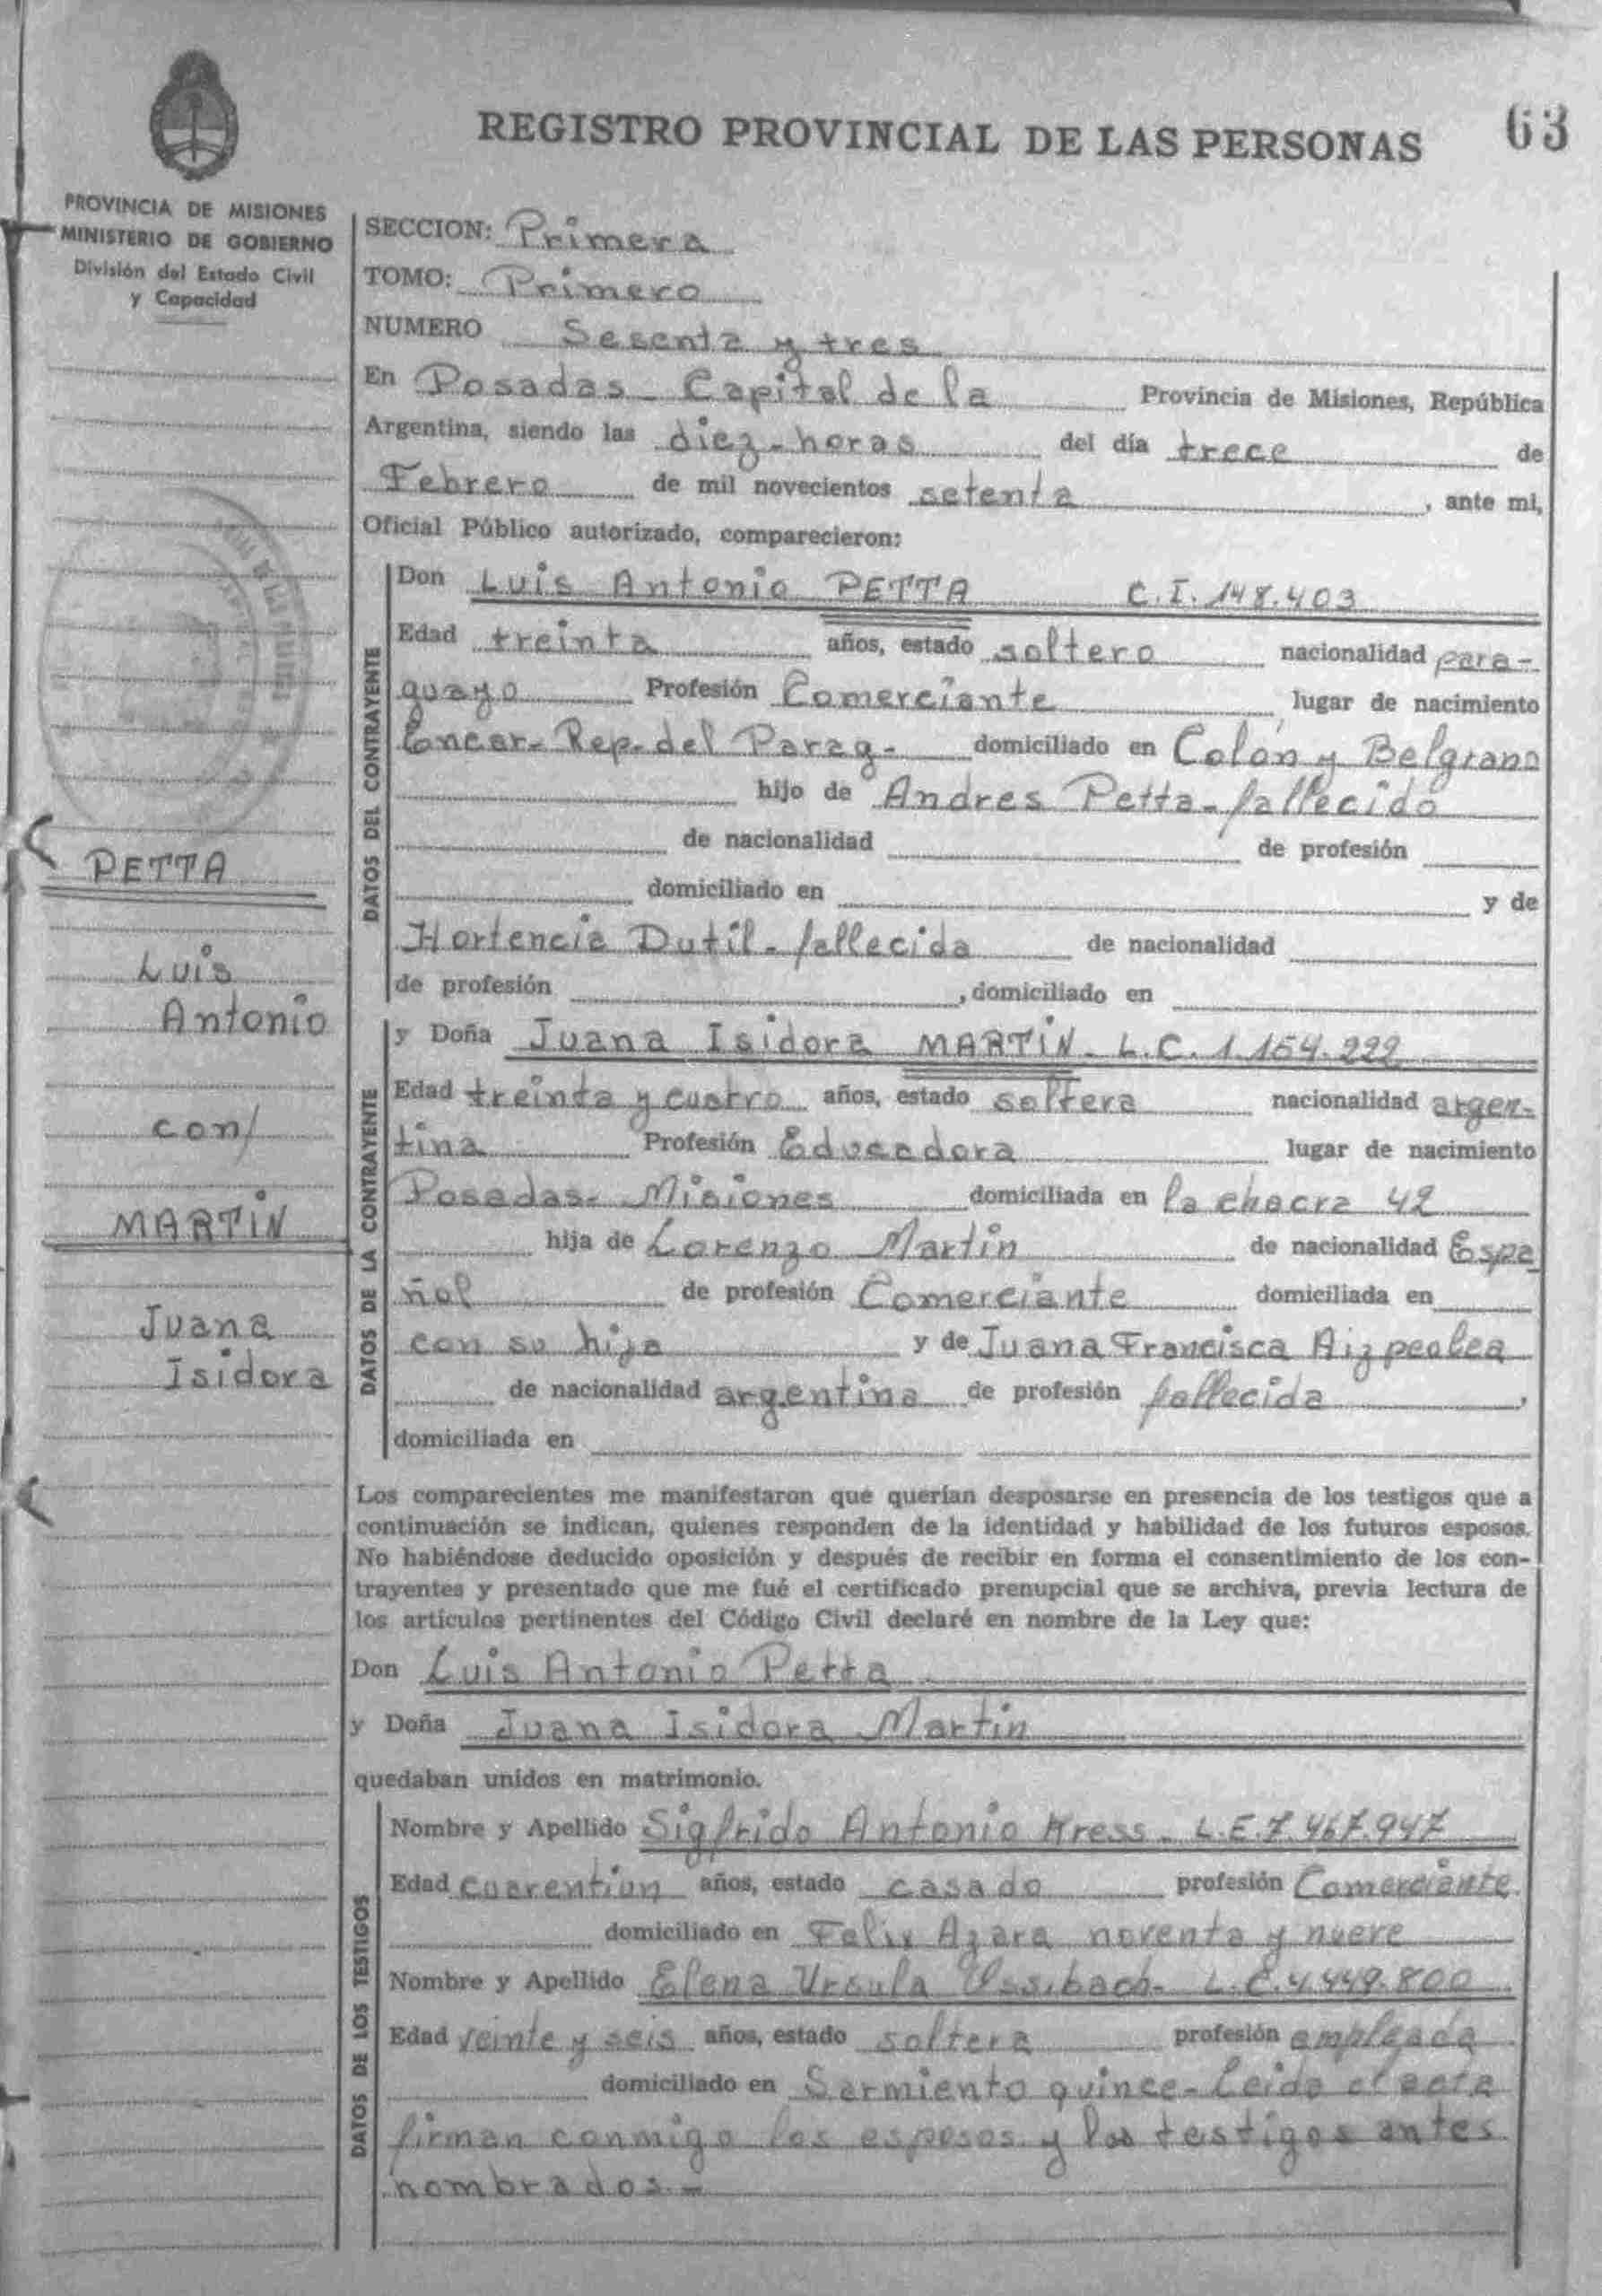 REGISTRO PROVINCIAL DE LAS PERSONAS
63
PROVINCIA DE MISIONES
MINISTERIO DE GOBIERNO
División del Estado Civil
y Capacidad
PETTA
Luis
Antonio
con/
MARTIN
Juana
Isidora
SECCION: Primera
TOMO: Primero
NUMERO Sesenta y tres
En Posadas - Capital de la Provincia de Misiones, República
Argentina, siendo las diez - horas del día trece de
Febrero de mil novecientos setenta, ante mi,
Oficial Público autorizado, comparecieron:
DATOS DEL CONTRAYENTE
Don Luis Antonio PETTA C.I. 148.403
Edad treinta años, estado soltero nacionalidad para-
guayo Profesión Comerciante lugar de nacimiento
Encar- Rep. del Parag- domiciliado en Colón y Belgrano
hijo de Andres Petta - fallecido
de nacionalidad de profesión
domiciliado en y de
Hortencia Dutil - fallecida de nacionalidad
de profesión , domiciliado en
DATOS DE LA CONTRAYENTE
y Doña Juana Isidora MARTIN - L.C. 1.154.222
Edad treinta y cuatro años, estado soltera nacionalidad argen-
tina Profesión Educadora lugar de nacimiento
Posadas - Misiones domiciliada en la chacra 42
hija de Lorenzo Martin de nacionalidad Espa
ñol de profesión Comerciante domiciliada en
con su hija y de Juana Francisca Aizpeolea
de nacionalidad argentina de profesión fallecida,
domiciliada en
Los comparecientes me manifestaron que querían desposarse en presencia de los testigos que a
continuación se indican, quienes responden de la identidad y habilidad de los futuros esposos.
No habiéndose deducido oposición y después de recibir en forma el consentimiento de los con-
trayentes y presentado que me fué el certificado prenupcial que se archiva, previa lectura de
los artículos pertinentes del Código Civil declaré en nombre de la Ley que:
Don Luis Antonio Petta
y Doña Juana Isidora Martin
quedaban unidos en matrimonio.
DATOS DE LOS TESTIGOS
Nombre y Apellido Sigfrido Antonio Kress - L.E. 7.467.947
Edad cuarentiun años, estado casado profesión Comerciante
domiciliado en Felix Azara noventa y nueve
Nombre y Apellido Elena Ursula L.C. 4.449.800
Edad veinte y seis años, estado soltera profesión empleada
domiciliado en Sarmiento quince - Leida el acta
firman conmigo los esposos y los testigos antes
nombrados -